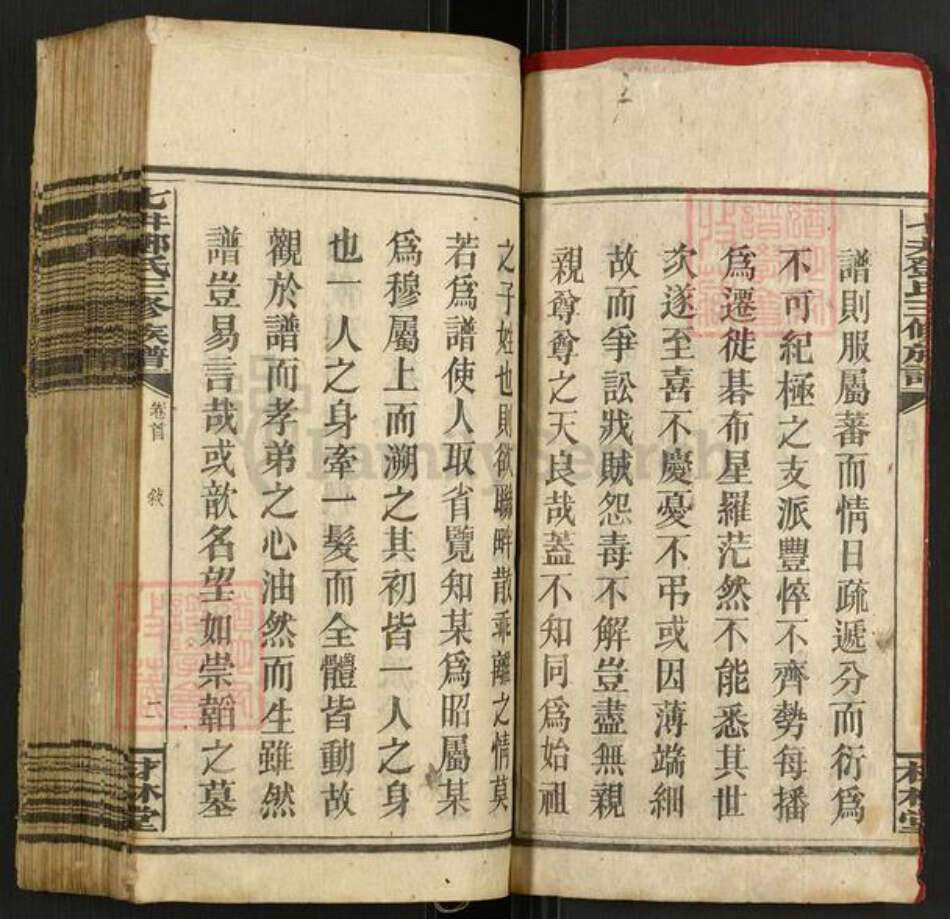 譜則服屬蕃而情日疏遞分而衍爲
不可紀極之支派豐悴不齊勢每播
爲遷徙碁布星羅茫然不能悉其世
次遂至喜不慶憂不弔或因薄端細
故而爭訟戕賊怨毒不解豈盡無親
親尊尊之天良哉蓋不知同爲始祖
之子姓也則欲聯畔散乖離之情莫
若爲譜使人取省覽知某爲昭屬某
爲穆屬上而溯之其初皆一人之身
也一人之身牽一髮而全體皆動故
觀於譜而孝弟之心油然而生雖然
譜豈易言哉或歆名望如崇韜之墓
七井鄧氏三修族譜
卷首
敘
二